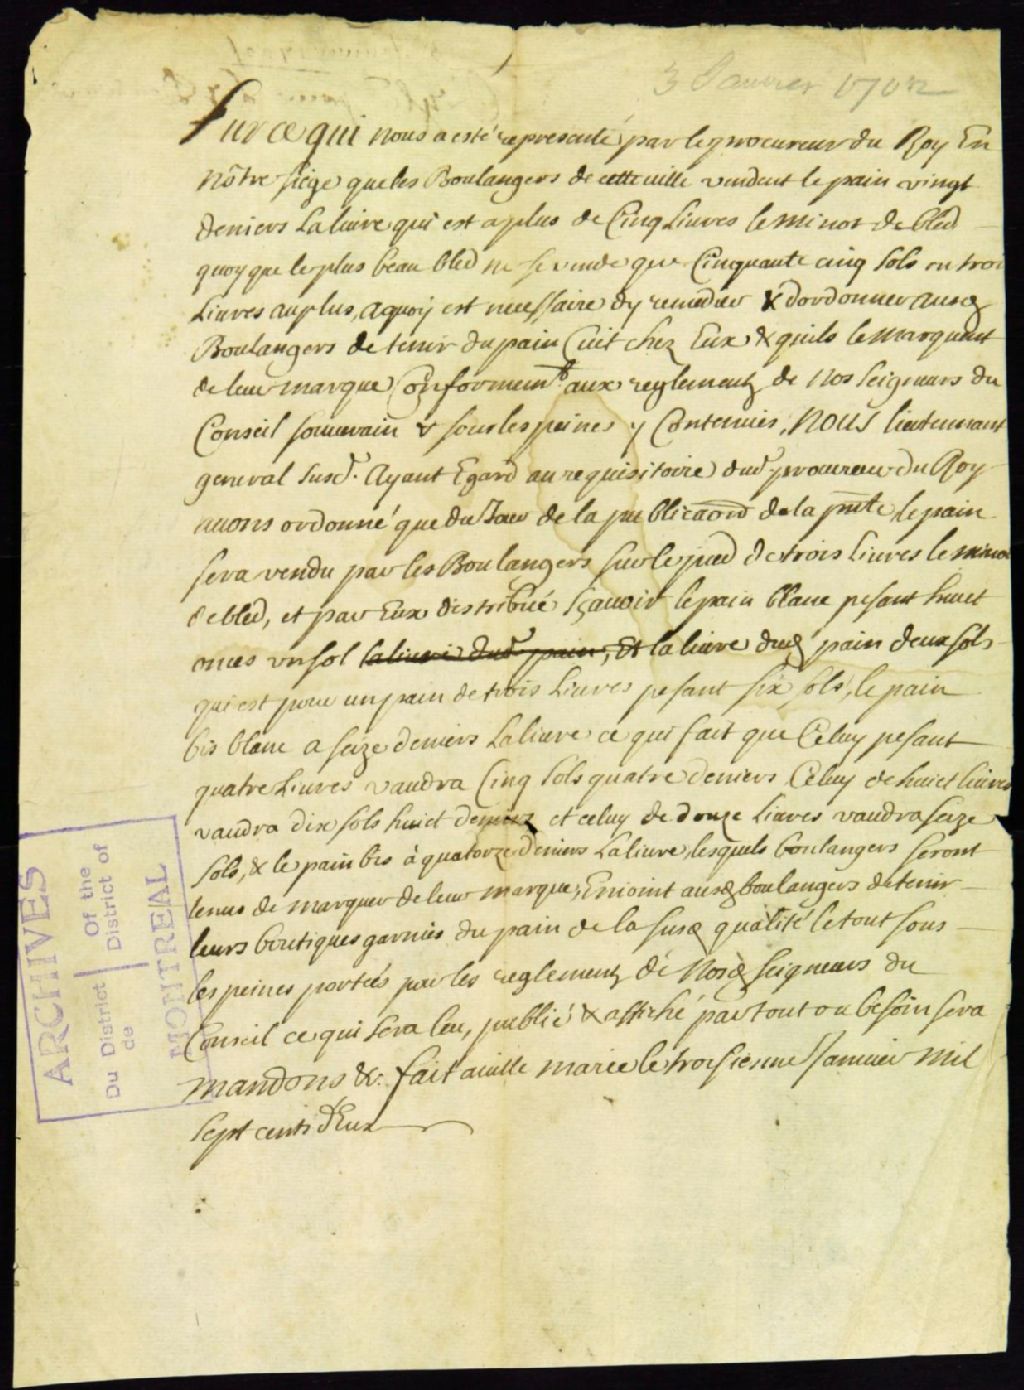 3 Janvier 1702
Sur ce qui nous a esté representé par le procureur du Roy En
nôtre siége que les Boulangers de cette ville vendent le pain vingt
deniers La livre qui est a plus de Cinq Livres le minot de bled
quoyque le plus beau bled ne se vende que Cinquante cinq sols ou trois
Livres au plus, a quoy est necessaire dy remedier & dordonner ausd
Boulangers de tenir du pain Cuit chez Eux & quils le marquent
de leur marque Conformemt aux reglements de Nos seigneurs du
Conseil souverain & sous les peines y Contenues, NOUS lieutenant
general susdt. Ayant Egard au requisitoire dudt procureur du Roy
avons ordonné que du Jour de la publicaōn de la pñte, le pain
sera vendu par les Boulangers sur le pied de trois Livres le minot
de bled, et par Eux distribué sçavoir le pain blanc pesant huict
onces un sol la livre dudt pain, Et la livre dud pain deux sols
qui est pour un pain de trois Livres pesant six sols, le pain
bis blanc a seize deniers La livre ce qui fait que Celuy pesant
quatre Livres vaudra Cinq sols quatre deniers Celuy de huict livres
vaudra dix sols huict deniers et celuy de douze Livres vaudra seize
sols, & le pain bis à quatorze deniers La livre, lesquels boulangers seront
tenus de marquer de leur marque, Enjoint ausd boulangers de tenir
leurs boutiques garnies du pain de la susd qualité le tout sous
les peines portées par les reglements de Nosd seigneurs du
Conseil ce qui sera leu, publié & affiché par tout ou besoin sera
mandons &c. fait a ville marie le troisienne Janvier mil
sept cents dEux
ARCHIVES
Du District Of the
de District of
MONTREAL